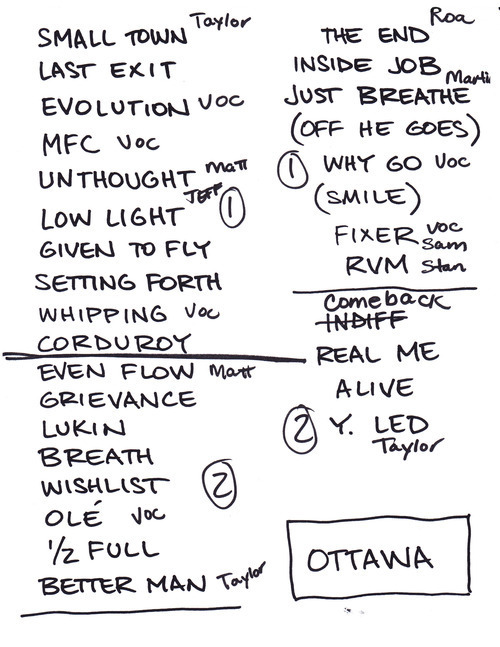 SMALL TOWN Taylor
LAST EXIT
EVOLUTION VOC
MFC VOC
UNTHOUGHT Matt
LOW LIGHT JEFF
1
GIVEN TO FLY
SETTING FORTH
WHIPPING VOC
CORDUROY
EVEN FLOW Matt
GRIEVANCE
LUKIN
BREATH
WISHLIST
2
OLÉ VOC
1/2 FULL
BETTER MAN Taylor
THE END Roa
INSIDE JOB
JUST BREATHE
(OFF HE GOES)
1 WHY GO VOC
(SMILE)
FIXER VOC Sam
RVM Stan
Comeback
INDIFF
REAL ME
ALIVE
2 Y. LED
Taylor
OTTAWA